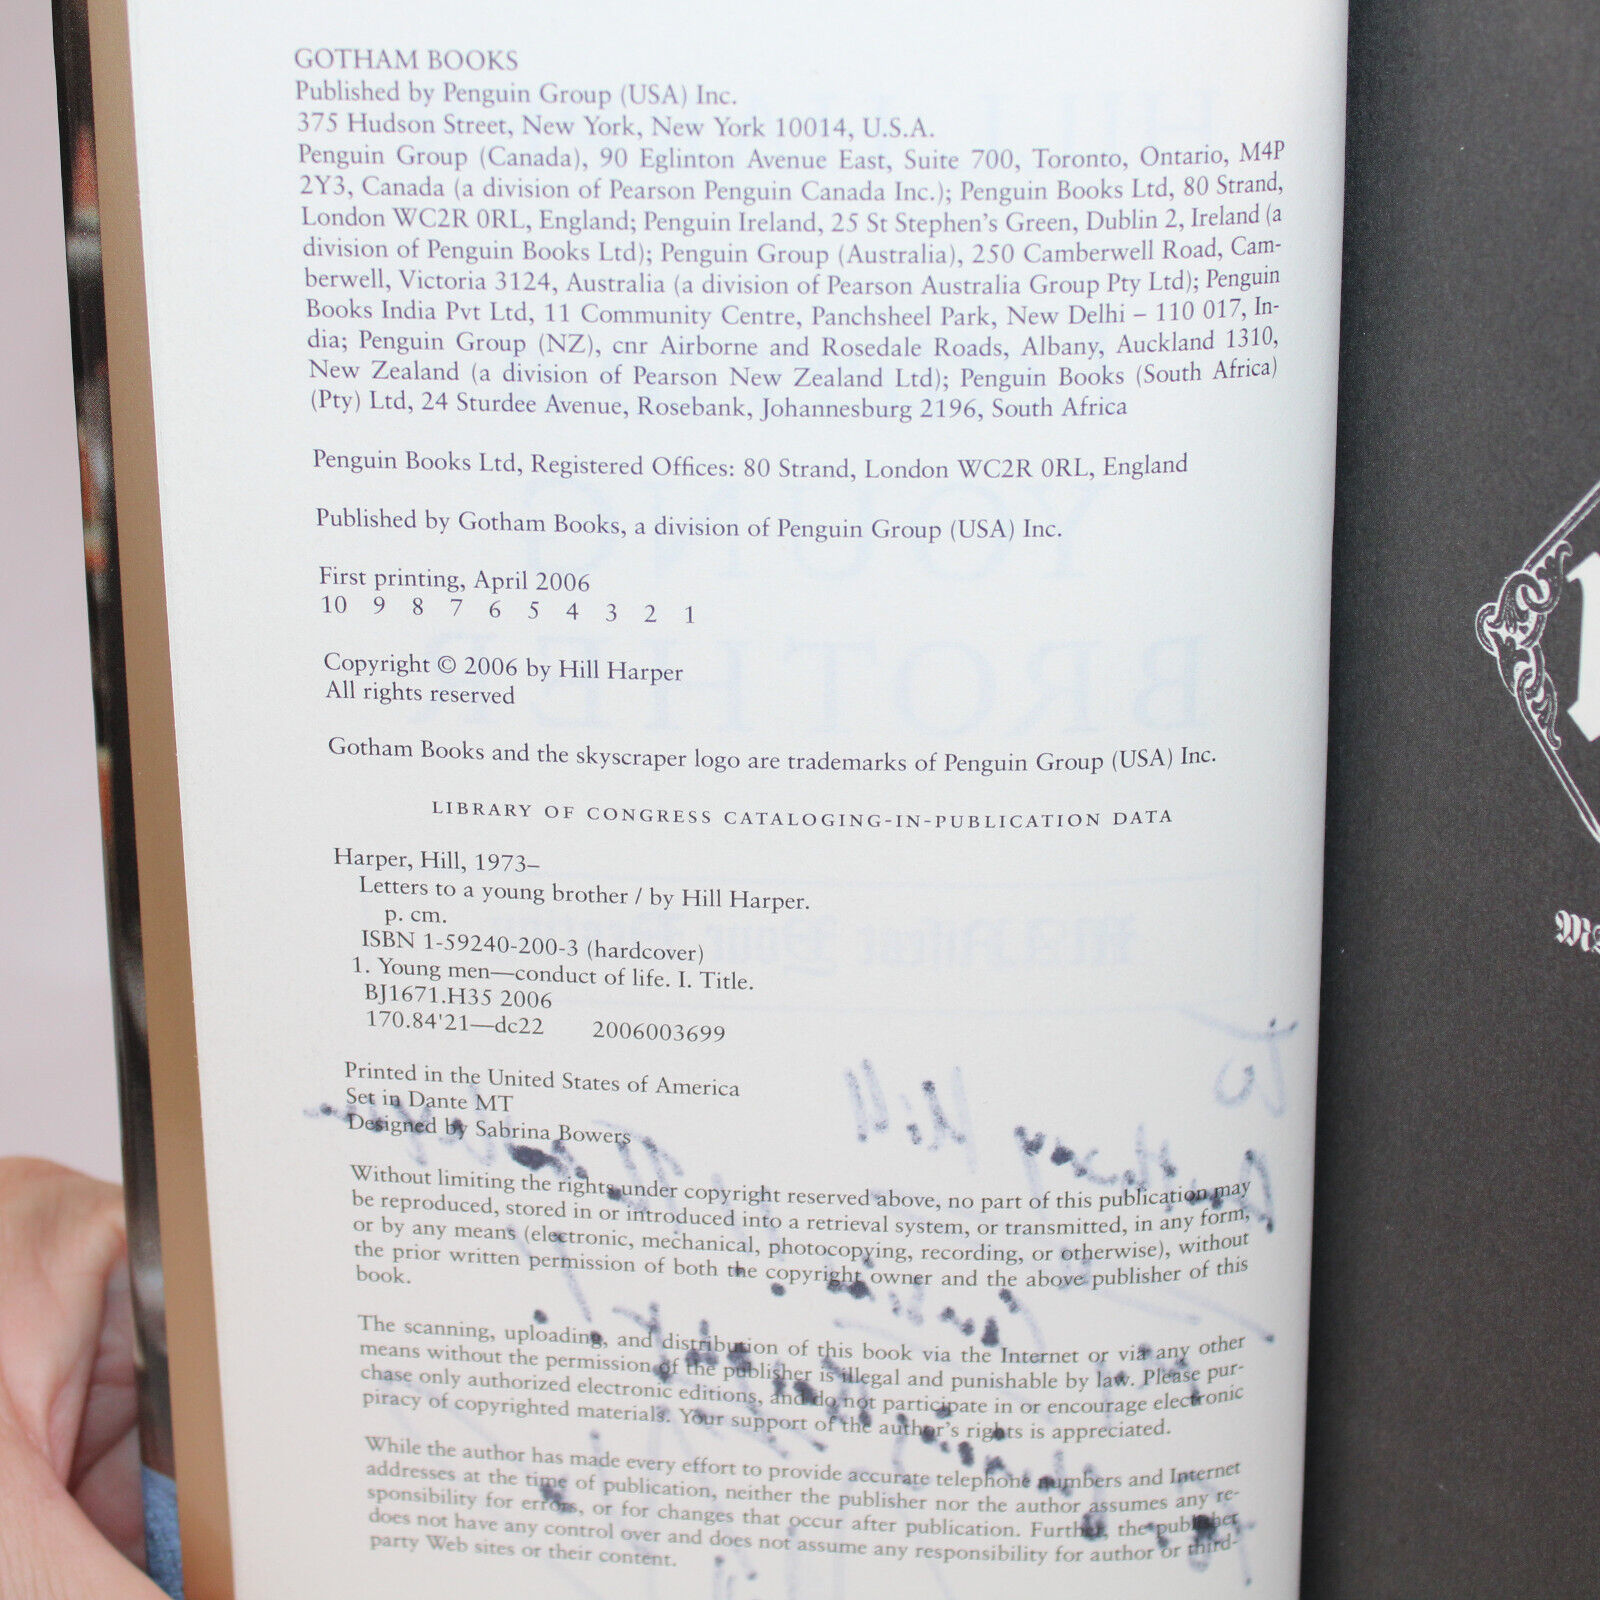 GOTHAM BOOKS
Published by Penguin Group (USA) Inc.
375 Hudson Street, New York, New York 10014, U.S.A.
Penguin Group (Canada), 90 Eglinton Avenue East, Suite 700, Toronto, Ontario, M4P
2Y3, Canada (a division of Pearson Penguin Canada Inc.); Penguin Books Ltd, 80 Strand,
London WC2R 0RL, England; Penguin Ireland, 25 St Stephen's Green, Dublin 2, Ireland (a
division of Penguin Books Ltd); Penguin Group (Australia), 250 Camberwell Road, Cam-
berwell, Victoria 3124, Australia (a division of Pearson Australia Group Pty Ltd); Penguin
Books India Pvt Ltd, 11 Community Centre, Panchsheel Park, New Delhi – 110 017, In-
dia; Penguin Group (NZ), cnr Airborne and Rosedale Roads, Albany, Auckland 1310,
New Zealand (a division of Pearson New Zealand Ltd); Penguin Books (South Africa)
(Pty) Ltd, 24 Sturdee Avenue, Rosebank, Johannesburg 2196, South Africa
Penguin Books Ltd, Registered Offices: 80 Strand, London WC2R 0RL, England
Published by Gotham Books, a division of Penguin Group (USA) Inc.
First printing, April 2006
10 9 8 7 6 5 4 3 2 1
Copyright © 2006 by Hill Harper
All rights reserved
Gotham Books and the skyscraper logo are trademarks of Penguin Group (USA) Inc.
LIBRARY OF CONGRESS CATALOGING-IN-PUBLICATION DATA
Harper, Hill, 1973–
Letters to a young brother / by Hill Harper.
p. cm.
ISBN 1-59240-200-3 (hardcover)
1. Young men—conduct of life. I. Title.
BJ1671.H35 2006
170.84'21—dc22 2006003699
Printed in the United States of America
Set in Dante MT
Designed by Sabrina Bowers
Without limiting the rights under copyright reserved above, no part of this publication may
be reproduced, stored in or introduced into a retrieval system, or transmitted, in any form,
or by any means (electronic, mechanical, photocopying, recording, or otherwise), without
the prior written permission of both the copyright owner and the above publisher of this
book.
The scanning, uploading, and distribution of this book via the Internet or via any other
means without the permission of the publisher is illegal and punishable by law. Please pur-
chase only authorized electronic editions, and do not participate in or encourage electronic
piracy of copyrighted materials. Your support of the author's rights is appreciated.
While the author has made every effort to provide accurate telephone numbers and Internet
addresses at the time of publication, neither the publisher nor the author assumes any re-
sponsibility for errors, or for changes that occur after publication. Further, the publisher
does not have any control over and does not assume any responsibility for author or third-
party Web sites or their content.